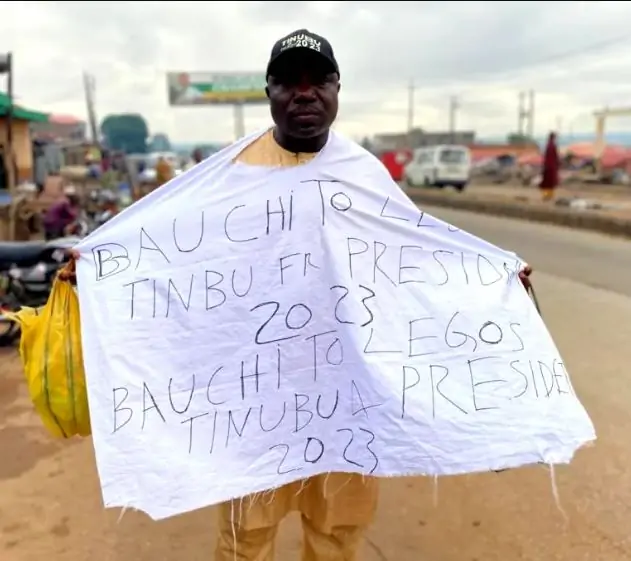 TINUBU
2023
BAUCHI TO
TINBU FR PRESID
2023
BAUCHI TO LEGOS
TINUBU PRESIDE
2023